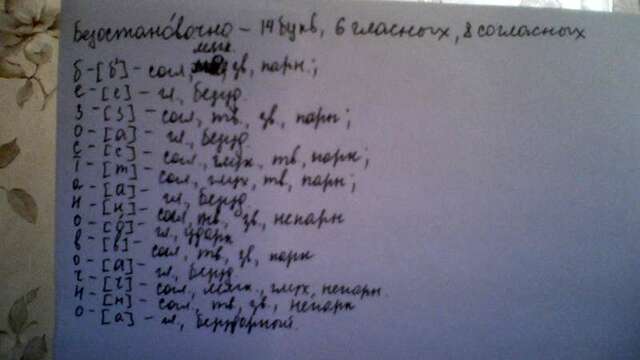 Безостано́вочно – 14 букв, 6 гласных, 8 согласных
б – [б'] – согл, мягк. зв, парн.;
е – [е] – гл., безуд.
з – [з] – согл, тв., зв, парн;
о – [а] – гл., безуд
с – [с] – согл, глух., тв, парн;
т – [т] – согл, глух, тв, парн;
а – [а] – гл., безуд.
н – [н] – согл, тв, зв, непарн
о – [о́] – гл, ударн
в – [в] – согл, тв, зв, парн
о – [а] – гл., безуд.
ч – [ч] – согл, мягк., глух, непарн.
н – [н] – согл, тв, зв., непарн
о – [а] – гл, безударный.